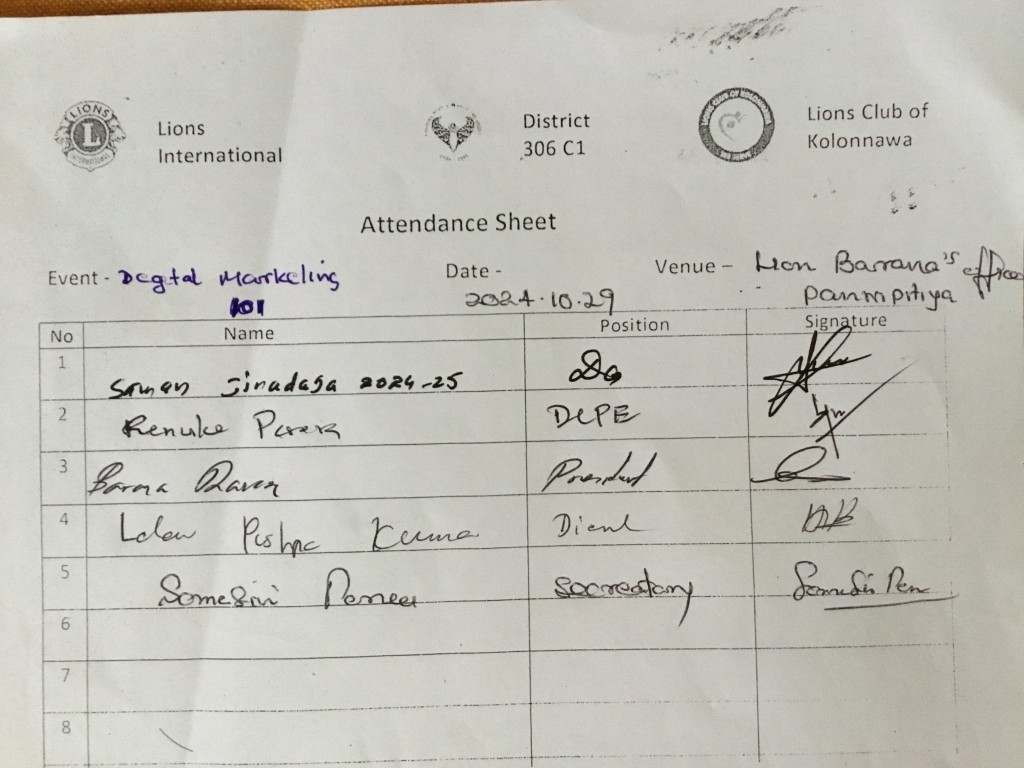 LIONS
L
INTERNATIONAL
Lions
International
District
306 C1
Lions Club of
Kolonnawa
Attendance Sheet
Event - Degital Markeling
101
Date -
2024.10.29
Venue - Lion Barrana's office
Pannipitiya
No Name Position Signature
1 Saman Jinadasa 2024-25
2 Renuke Perera DCPE
3 President
4 Pushpa Kuma
5 Somesiri socreatary
6
7
8